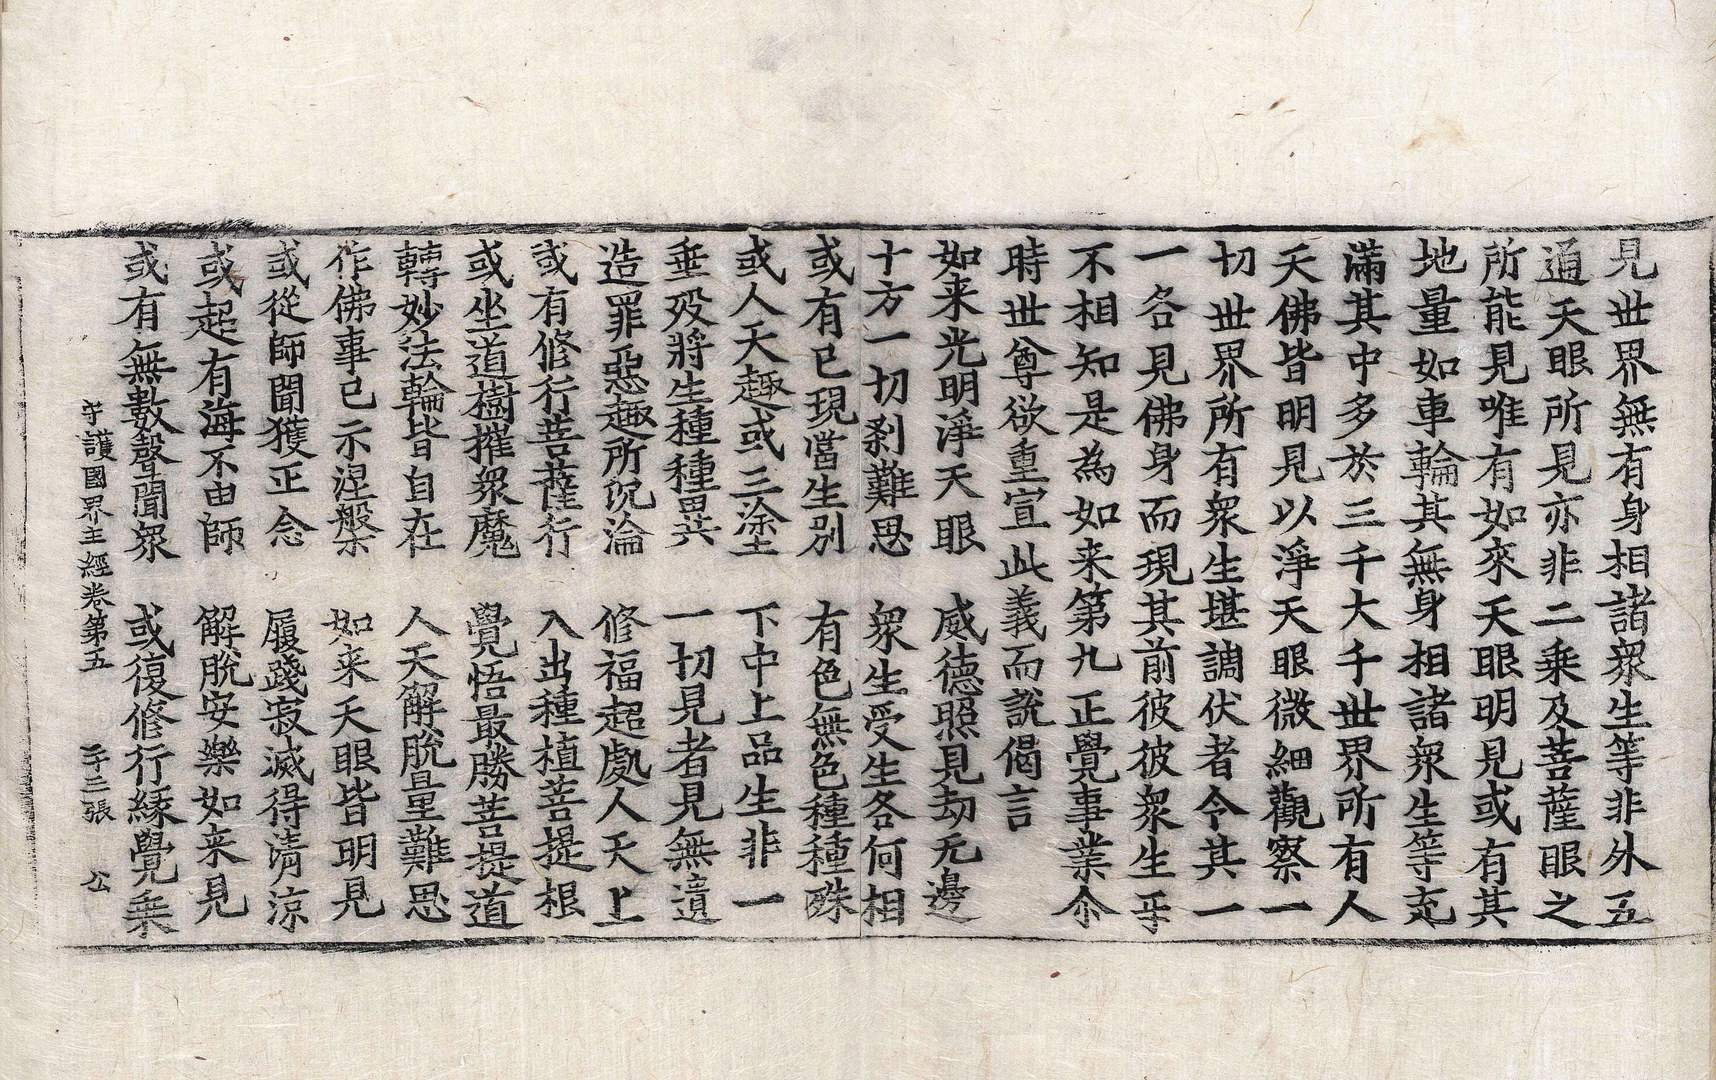 見世界無有身相諸衆生等非外五
通天眼所見亦非二乘及菩薩眼之
所能見唯有如來天眼明見或有其
地量如車輪其無身相諸衆生等充
滿其中多於三千大千世界所有人
天佛皆明見以淨天眼微細觀察一
切世界所有衆生堪調伏者令其一
一各見佛身而現其前彼彼衆生乎
不相知是為如来第九正覺事業尒
時世尊欲重宣此義而説偈言
如来光明淨天眼 威德照見劫无邊
十方一切刹難思 衆生受生各何相
或有已現當生别 有色無色種種殊
或人天趣或三塗 下中上品生非一
垂殁將生種種異 一切見者見無遺
造罪惡趣所沉淪 修福超處人天上
或有修行菩薩行 入出種植菩提根
或坐道樹摧衆魔 覺悟最勝菩提道
轉妙法輪皆自在 人天解脱量難思
作佛事已示涅槃 如来天眼皆明見
或從師聞獲正念 履踐寂滅得清涼
或起有海不由師 解脱安樂如来見
或有無數聲聞衆 或復修行緣覺乗
守護國界主經卷第五 二十三張 公